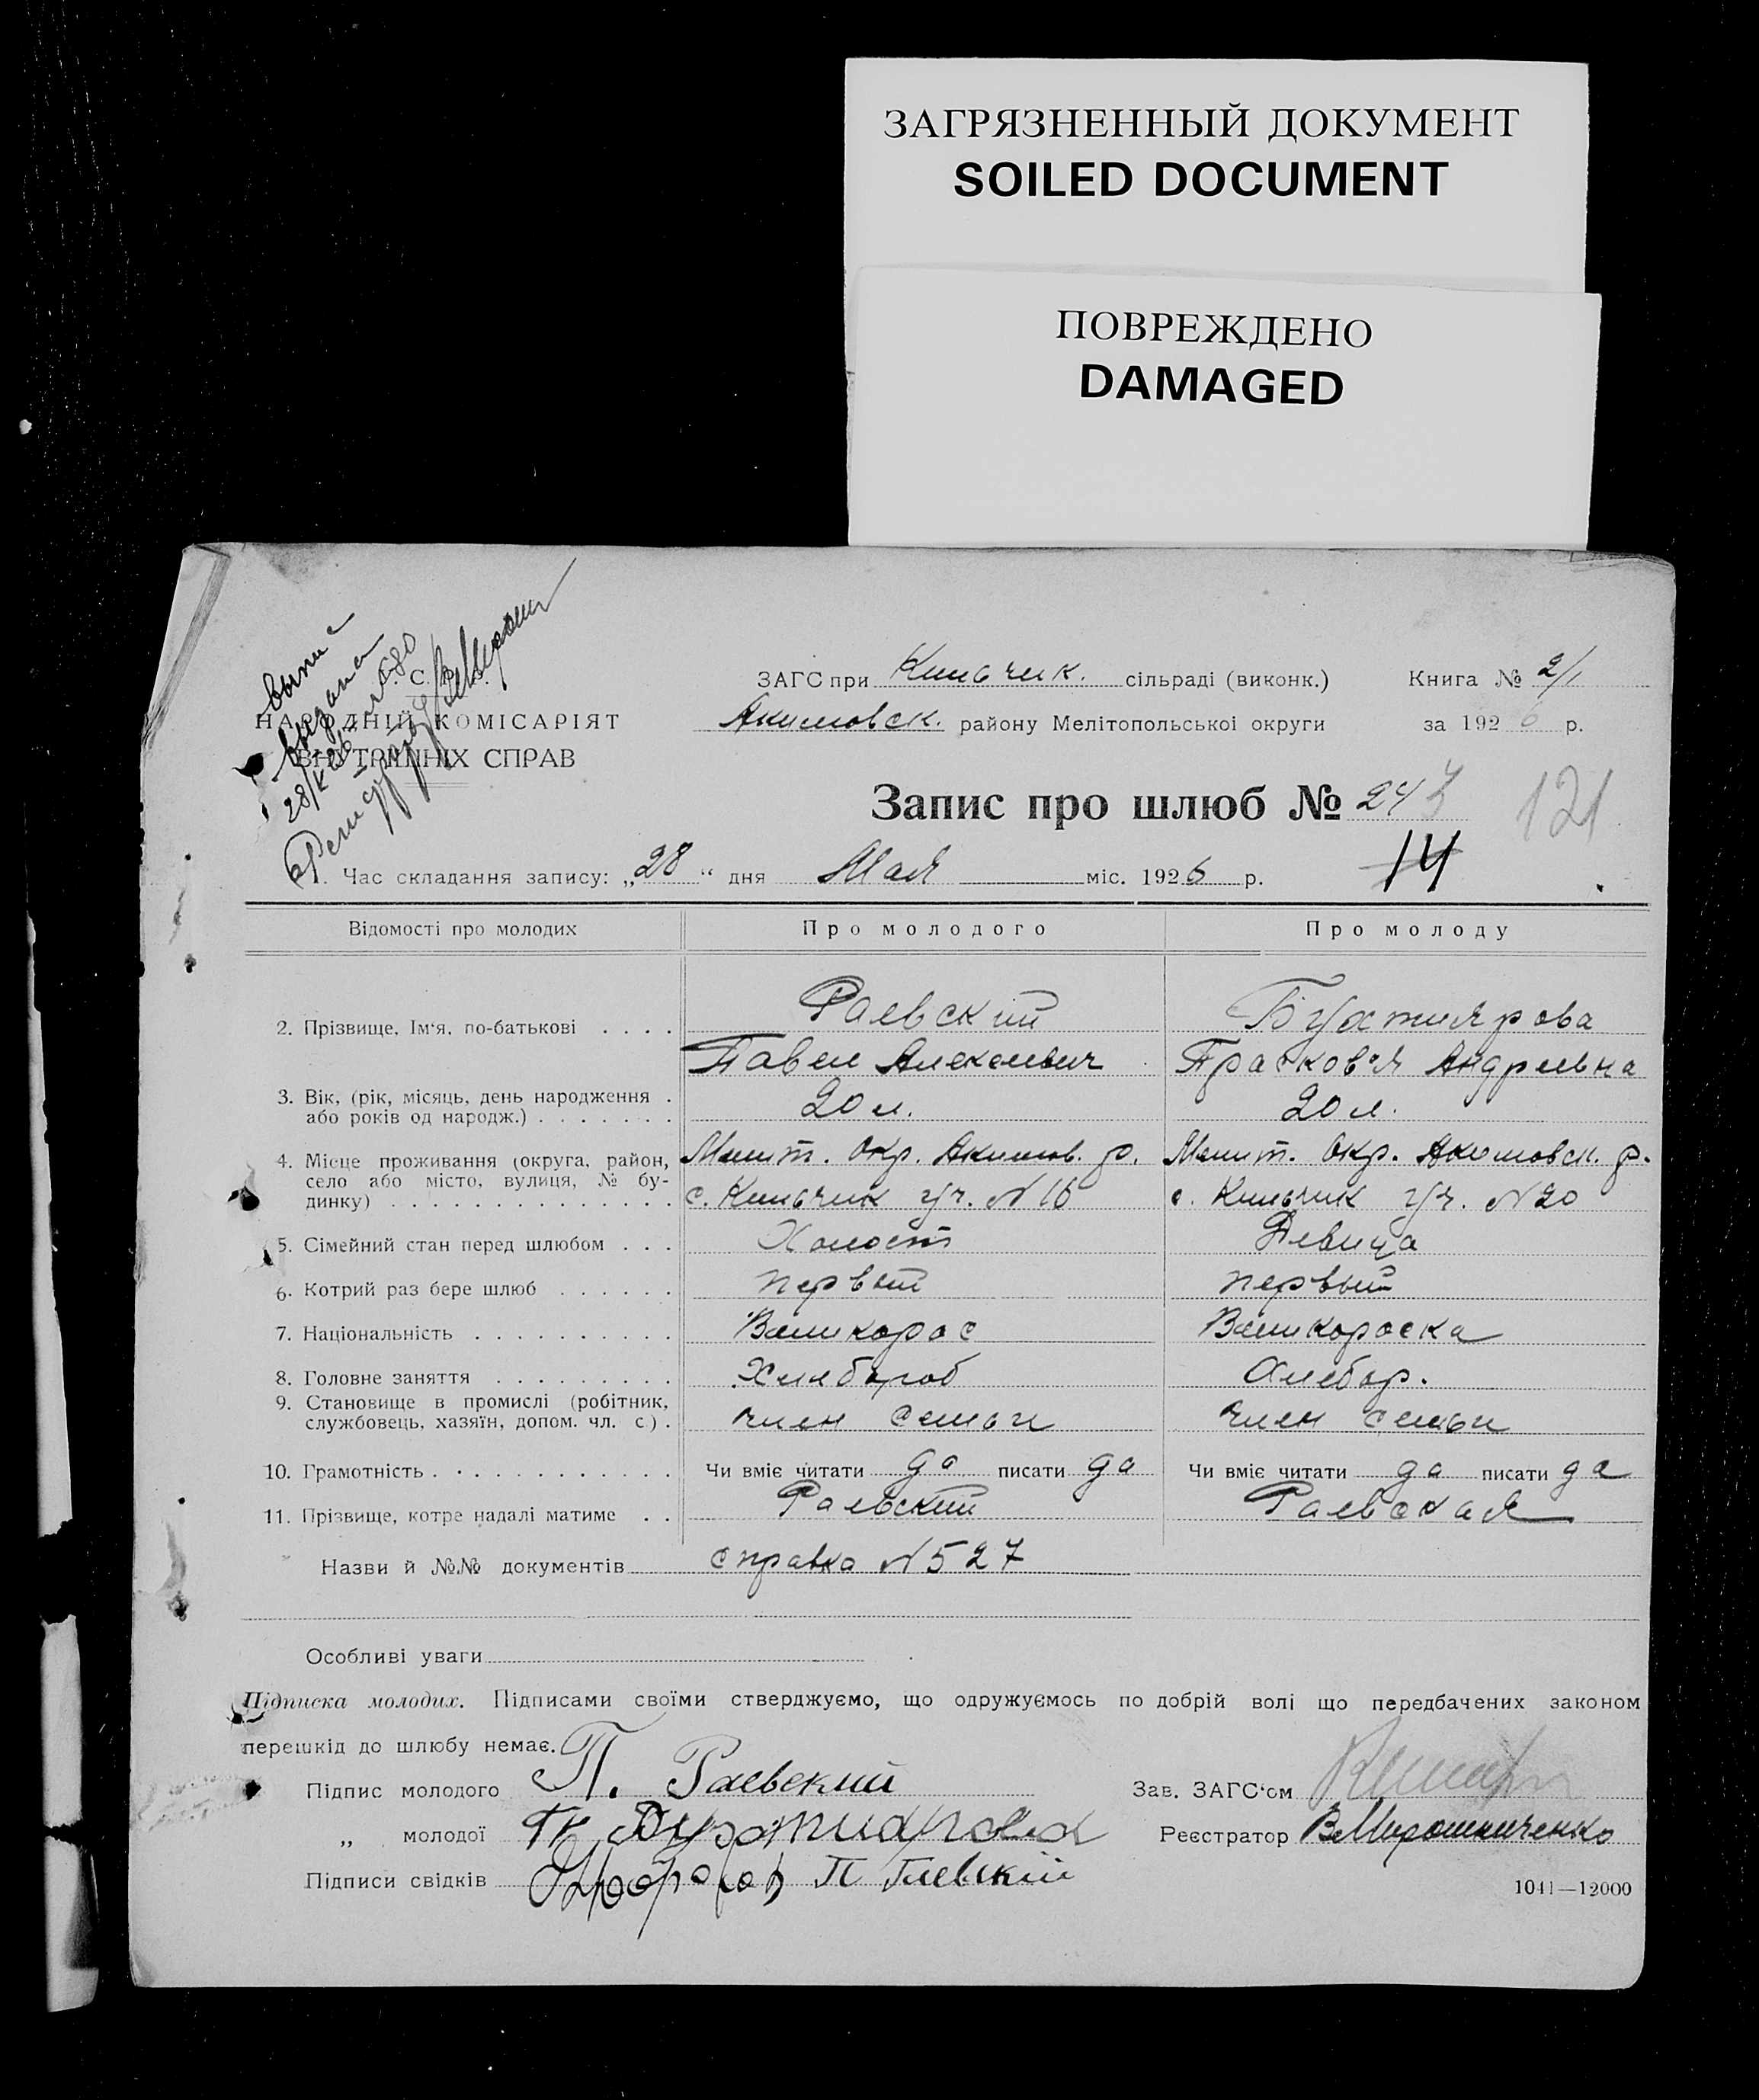 ЗАГРЯЗНЕННЫЙ ДОКУМЕНТ
SOILED DOCUMENT
ПОВРЕЖДЕНО
DAMAGED
выпись
выдана
НАРОДНІЙ КОМІСАРІЯТ
ВНУТРІШНІХ СПРАВ
ЗАГС при Кильчик. сільраді (виконк.) Книга № 2/1
Акимовск. району Мелітопольської округи за 1926 р.
Запис про шлюб № 243 121
14
1. Час складання запису: „28“ дня Мая міс. 1926 р.
Відомості про молодих Про молодого Про молоду
2. Прізвище, Ім'я, по-батькові . . . . Раевский Бухтиярова
Павел Алексеевич Прасковья Андреевна
3. Вік, (рік, місяць, день народження .
або років од народж.) . . . . . . . 20 л. 20 л.
4. Місце проживання (округа, район, Мелит. окр. Акимов. р. Мелит. Окр. Акимовск. р.
село або місто, вулиця, № бу-
динку) . . . . . . . . . . . . . . с. Кильчик уч. N 16 с. Кильчик уч. N 20
5. Сімейний стан перед шлюбом . . . Холост Девица
6. Котрий раз бере шлюб . . . . . . первый первый
7. Національність . . . . . . . . . . Великорос Великороска
8. Головне заняття . . . . . . . . . Хлебороб Хлебор.
9. Становище в промислі (робітник,
службовець, хазяїн, допом. чл. с.) . член семьи член семьи
10. Грамотність . . . . . . . . . . . . Чи вміє читати да писати да Чи вміє читати да писати да
11. Прізвище, котре надалі матиме . . Раевский Раевская
Назви й №№ документів справка N 527
Особливі уваги
Підписка молодих. Підписами своїми стверджуємо, що одружуємось по добрій волі що передбачених законом
перешкід до шлюбу немає.
Підпис молодого П. Раевский Зав. ЗАГС'ом
„ молодої Бухтиарова Реєстратор В Мирошниченко
Підписи свідків П
1041—12000